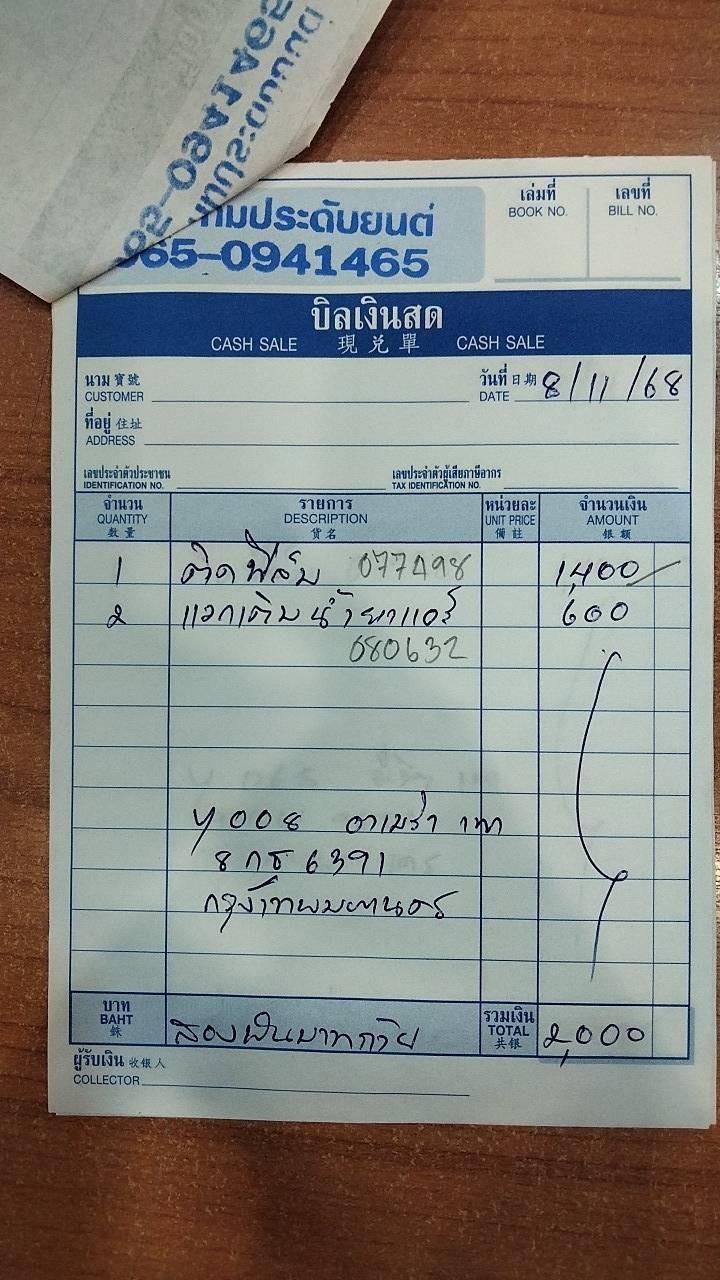 ประดับยนต์
065-0941465
เล่มที่ เลขที่
BOOK NO. BILL NO.
บิลเงินสด
CASH SALE 現兑單 CASH SALE
นาม 寶號 วันที่ 日期 8/11/68
CUSTOMER DATE
ที่อยู่ 住址
ADDRESS
เลขประจำตัวประชาชน เลขประจำตัวผู้เสียภาษีอากร
IDENTIFICATION NO. TAX IDENTIFICATION NO.
จำนวน รายการ หน่วยละ จำนวนเงิน
QUANTITY DESCRIPTION UNIT PRICE AMOUNT
數量 貨名 備註 銀額
1 ติดฟิล์ม 077498 1,400
2 แวกเติมน้ำยาแอร์ 600
080632
4008 อาเมร่า เทา
8กธ6391
กรุงเทพมหานคร
บาท รวมเงิน
BAHT สองพันบาทถ้วย TOTAL 2,000
銖 共银
ผู้รับเงิน 收银人
COLLECTOR